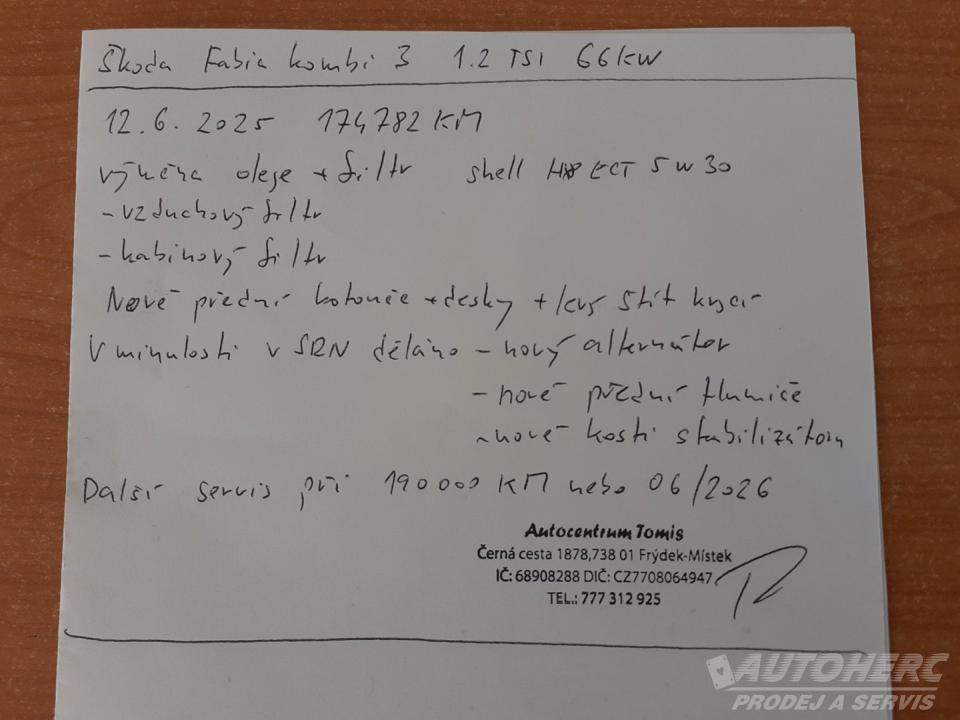 Škoda Fabia kombi 3 1.2 TSI 66kW
12.6.2025 174782 KM
výměna oleje + filtr shell HX8 ECT 5W30
- vzduchový filtr
- kabinový filtr
Nové přední kotouče + desky + levý štít krycí
V minulosti v SRN děláno - nový alternátor
- nové přední tlumiče
- nové kosti stabilizátoru
Další servis při 190000 KM nebo 06/2026
Autocentrum Tomis
Černá cesta 1878,738 01 Frýdek-Místek
IČ: 68908288 DIČ: CZ7708064947
TEL.: 777 312 925
AUTOHERC
PRODEJ A SERVIS